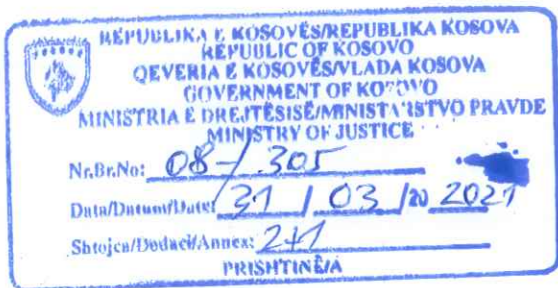 REPUBLIKA E KOSOVËS/REPUBLIKA KOSOVA
REPUBLIC OF KOSOVO
QEVERIA E KOSOVËS/VLADA KOSOVA
GOVERNMENT OF KOSOVO
MINISTRIA E DREJTËSISË/MINISTARSTVO PRAVDE
MINISTRY OF JUSTICE
Nr.Br.No: 08-/305
Data/Datum/Date: 31 / 03 /20 2021
Shtojca/Dodaci/Annex: 2+1
PRISHTINË/A